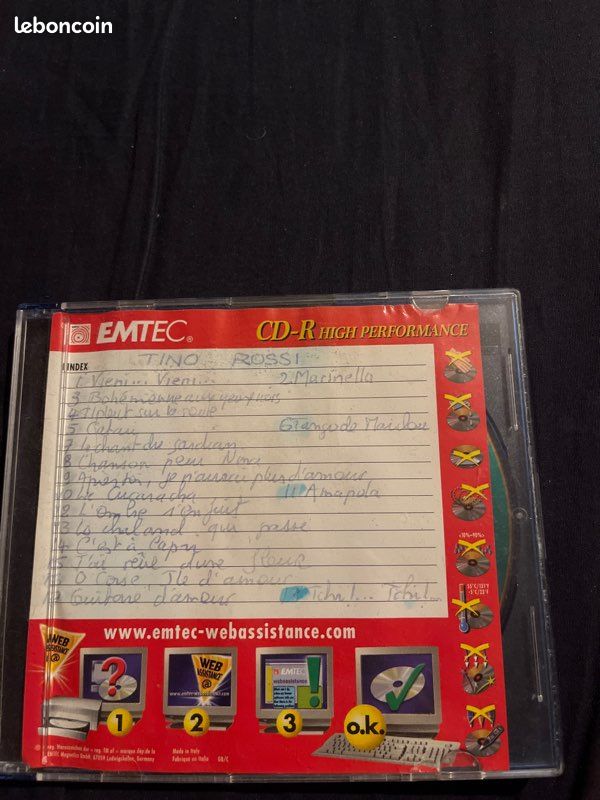 leboncoin
EMTEC®
CD-R HIGH PERFORMANCE
INDEX
TINO ROSSI
1. Vieni... Vieni... 2. Marinella
3 Bohémienne aux yeux noirs
4 Il pleut sur la route
5 Catari 6 Tango de
7 Le chant du gardian
8 Chanson pour Nina
9 je n'aurai plus d'amour
10 La Cucaracha 11 Amapola
12 L'ombre s'enfuit
13 Le chaland qui passe
14 C'est à Capri
15 J'ai rêvé d'une fleur
16 O Corse, Ile d'amour
Guitare d'amour Tchi!... Tchi!...
<10%->90%
55°C/131°F
-5°C/23°F
www.emtec-webassistance.com
WEB
ASSISTANCE
@
?
1
WEB
ASSISTANCE
@
www.emtec-webassistance.com
2
EMTEC
webassistance
!
3
o.k.
Made in Italy
Fabriqué en Italie GB/C
EMTEC Magnetics GmbH, 67059 Ludwigshafen, Germany